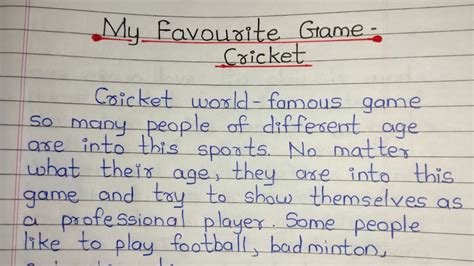 My Favourite Game -
Cricket
Cricket world-famous game
so many people of different age
are into this sports. No matter
what their age, they are into this
game and try to show themselves as
a professional player. Some people
like to play football, badminton,